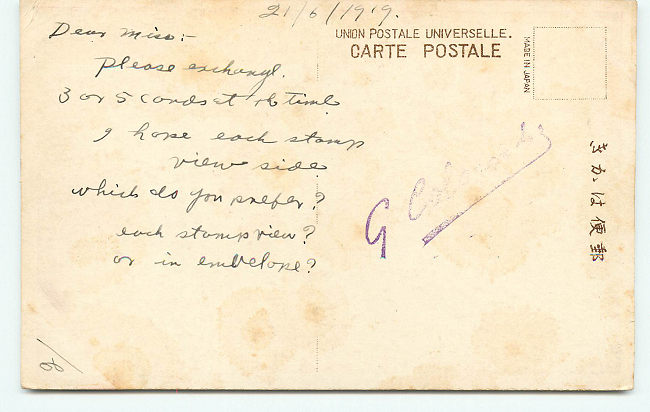 21/6/1919.
UNION POSTALE UNIVERSELLE.
CARTE POSTALE
MADE IN JAPAN
Dear Miss:-
Please exchange.
3 or 5 cards at a time
I hope each stamp
view side
which do you prefer?
each stamp view?
or in embelope?
G
きかは便郵